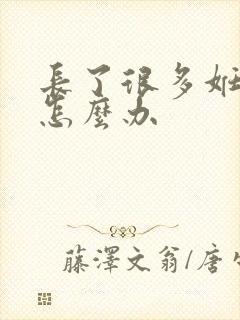 長了很多
怎麼办
藤澤文翁/唐